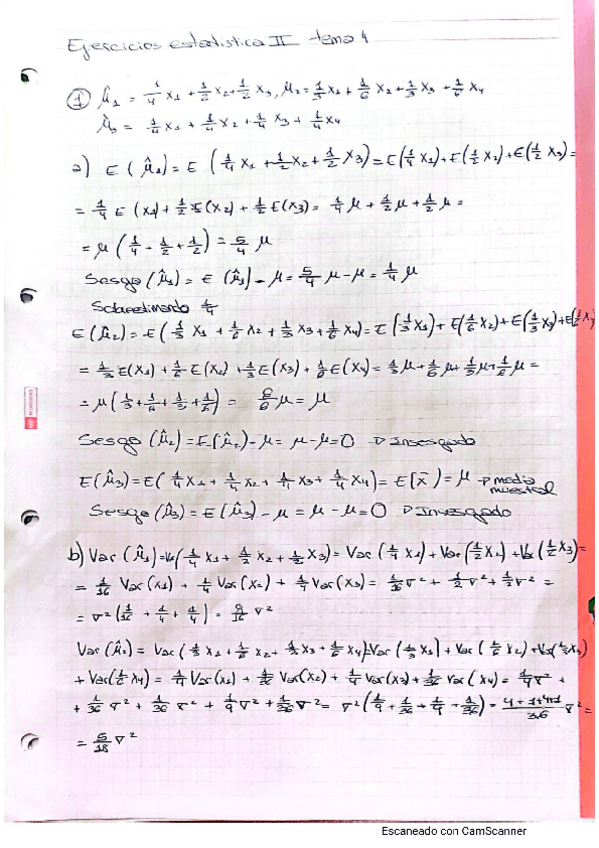 Ejercicios estadistica II tema 4
① μ̂₁ = 1/4 x₁ + 1/2 x₂ + 1/2 x₃, μ̂₂ = 1/3 x₁ + 1/6 x₂ + 1/3 x₃ + 1/6 x₄
μ̂₃ = 1/4 x₁ + 1/4 x₂ + 1/4 x₃ + 1/4 x₄
a) E(μ̂₁) = E(1/4 x₁ + 1/2 x₂ + 1/2 x₃) = E(1/4 x₁) + E(1/2 x₂) + E(1/2 x₃) =
= 1/4 E(x₁) + 1/2 E(x₂) + 1/2 E(x₃) = 1/4 μ + 1/2 μ + 1/2 μ =
= μ(1/4 + 1/2 + 1/2) = 5/4 μ
Sesgo(μ̂₁) = E(μ̂₁) - μ = 5/4 μ - μ = 1/4 μ
E(μ̂₂) = E(1/3 x₁ + 1/6 x₂ + 1/3 x₃ + 1/6 x₄) = E(1/3 x₁) + E(1/6 x₂) + E(1/3 x₃) + E(1/6 x₄
= 1/3 E(x₁) + 1/6 E(x₂) + 1/3 E(x₃) + 1/6 E(x₄) = 1/3 μ + 1/6 μ + 1/3 μ + 1/6 μ =
= μ(1/3 + 1/6 + 1/3 + 1/6) = 6/6 μ = μ
Sesgo(μ̂₂) = E(μ̂₂) - μ = μ - μ = 0 → Insesgado
E(μ̂₃) = E(1/4 x₁ + 1/4 x₂ + 1/4 x₃ + 1/4 x₄) = E(x̄) = μ → media muestral
Sesgo(μ̂₃) = E(μ̂₃) - μ = μ - μ = 0 → Insesgado
b) Var(μ̂₁) = Var(1/4 x₁ + 1/2 x₂ + 1/2 x₃) = Var(1/4 x₁) + Var(1/2 x₂) + Var(1/2 x₃) =
= 1/16 Var(x₁) + 1/4 Var(x₂) + 1/4 Var(x₃) = 1/16 σ² + 1/2 σ² + 1/2 σ² =
= σ²(1/16 + 1/4 + 1/4) = 9/16 σ²
Var(μ̂₂) = Var(1/3 x₁ + 1/6 x₂ + 1/3 x₃ + 1/6 x₄) = Var(1/3 x₁) + Var(1/6 x₂) + Var(1/3 x₃)
+ Var(1/6 x₄) = 1/9 Var(x₁) + 1/36 Var(x₂) + 1/9 Var(x₃) + 1/36 Var(x₄) = 1/9 σ² +
+ 1/36 σ² + 1/36 σ² + 1/9 σ² + 1/36 σ² = σ²(1/9 + 1/36 + 1/9 + 1/36) = 4+1+4+1/36 σ² =
= 5/18 σ²
Escaneado con CamScanner